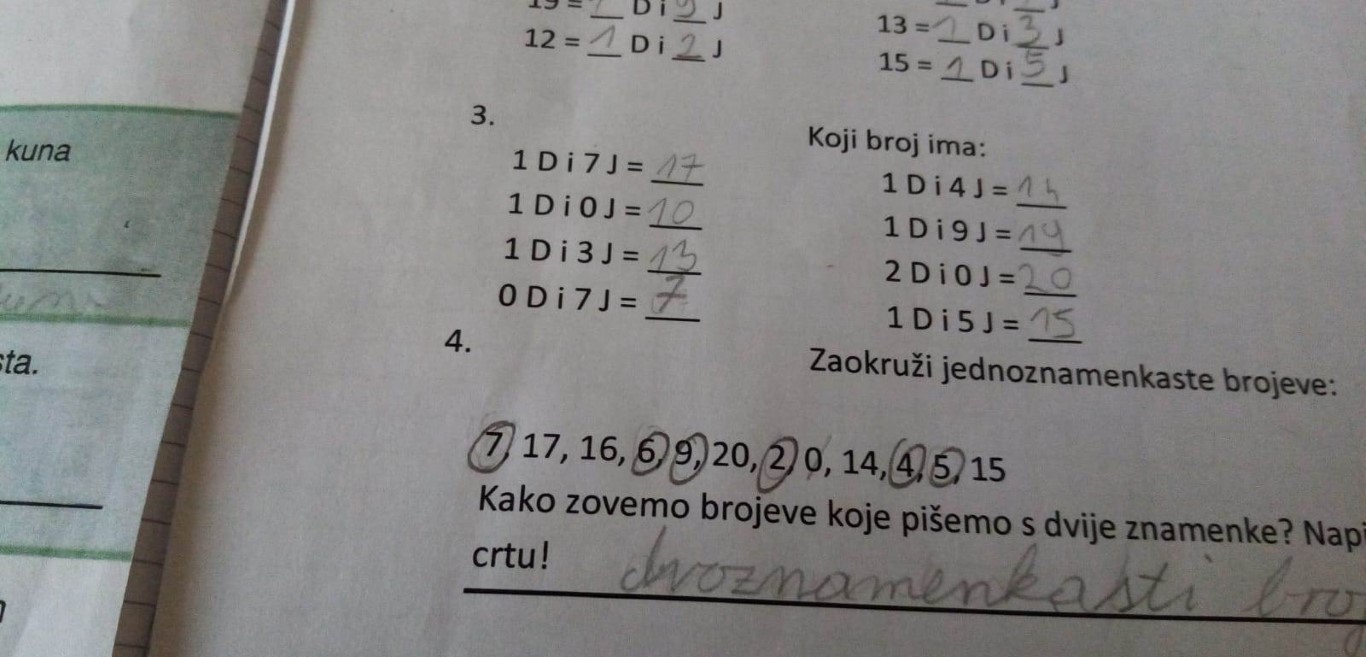 19 = 1 D i 9 J
12 = 1 D i 2 J
13 = 1 D i 3 J
15 = 1 D i 5 J
kuna
3.
1 D i 7 J = 17
1 D i 0 J = 10
1 D i 3 J = 13
0 D i 7 J = 7
Koji broj ima:
1 D i 4 J = 14
1 D i 9 J = 19
2 D i 0 J = 20
1 D i 5 J = 15
sta.
4.
Zaokruži jednoznamenkaste brojeve:
7, 17, 16, 6, 9, 20, 2, 0, 14, 4, 5, 15
Kako zovemo brojeve koje pišemo s dvije znamenke? Napi
crtu!
dvoznamenkasti broj